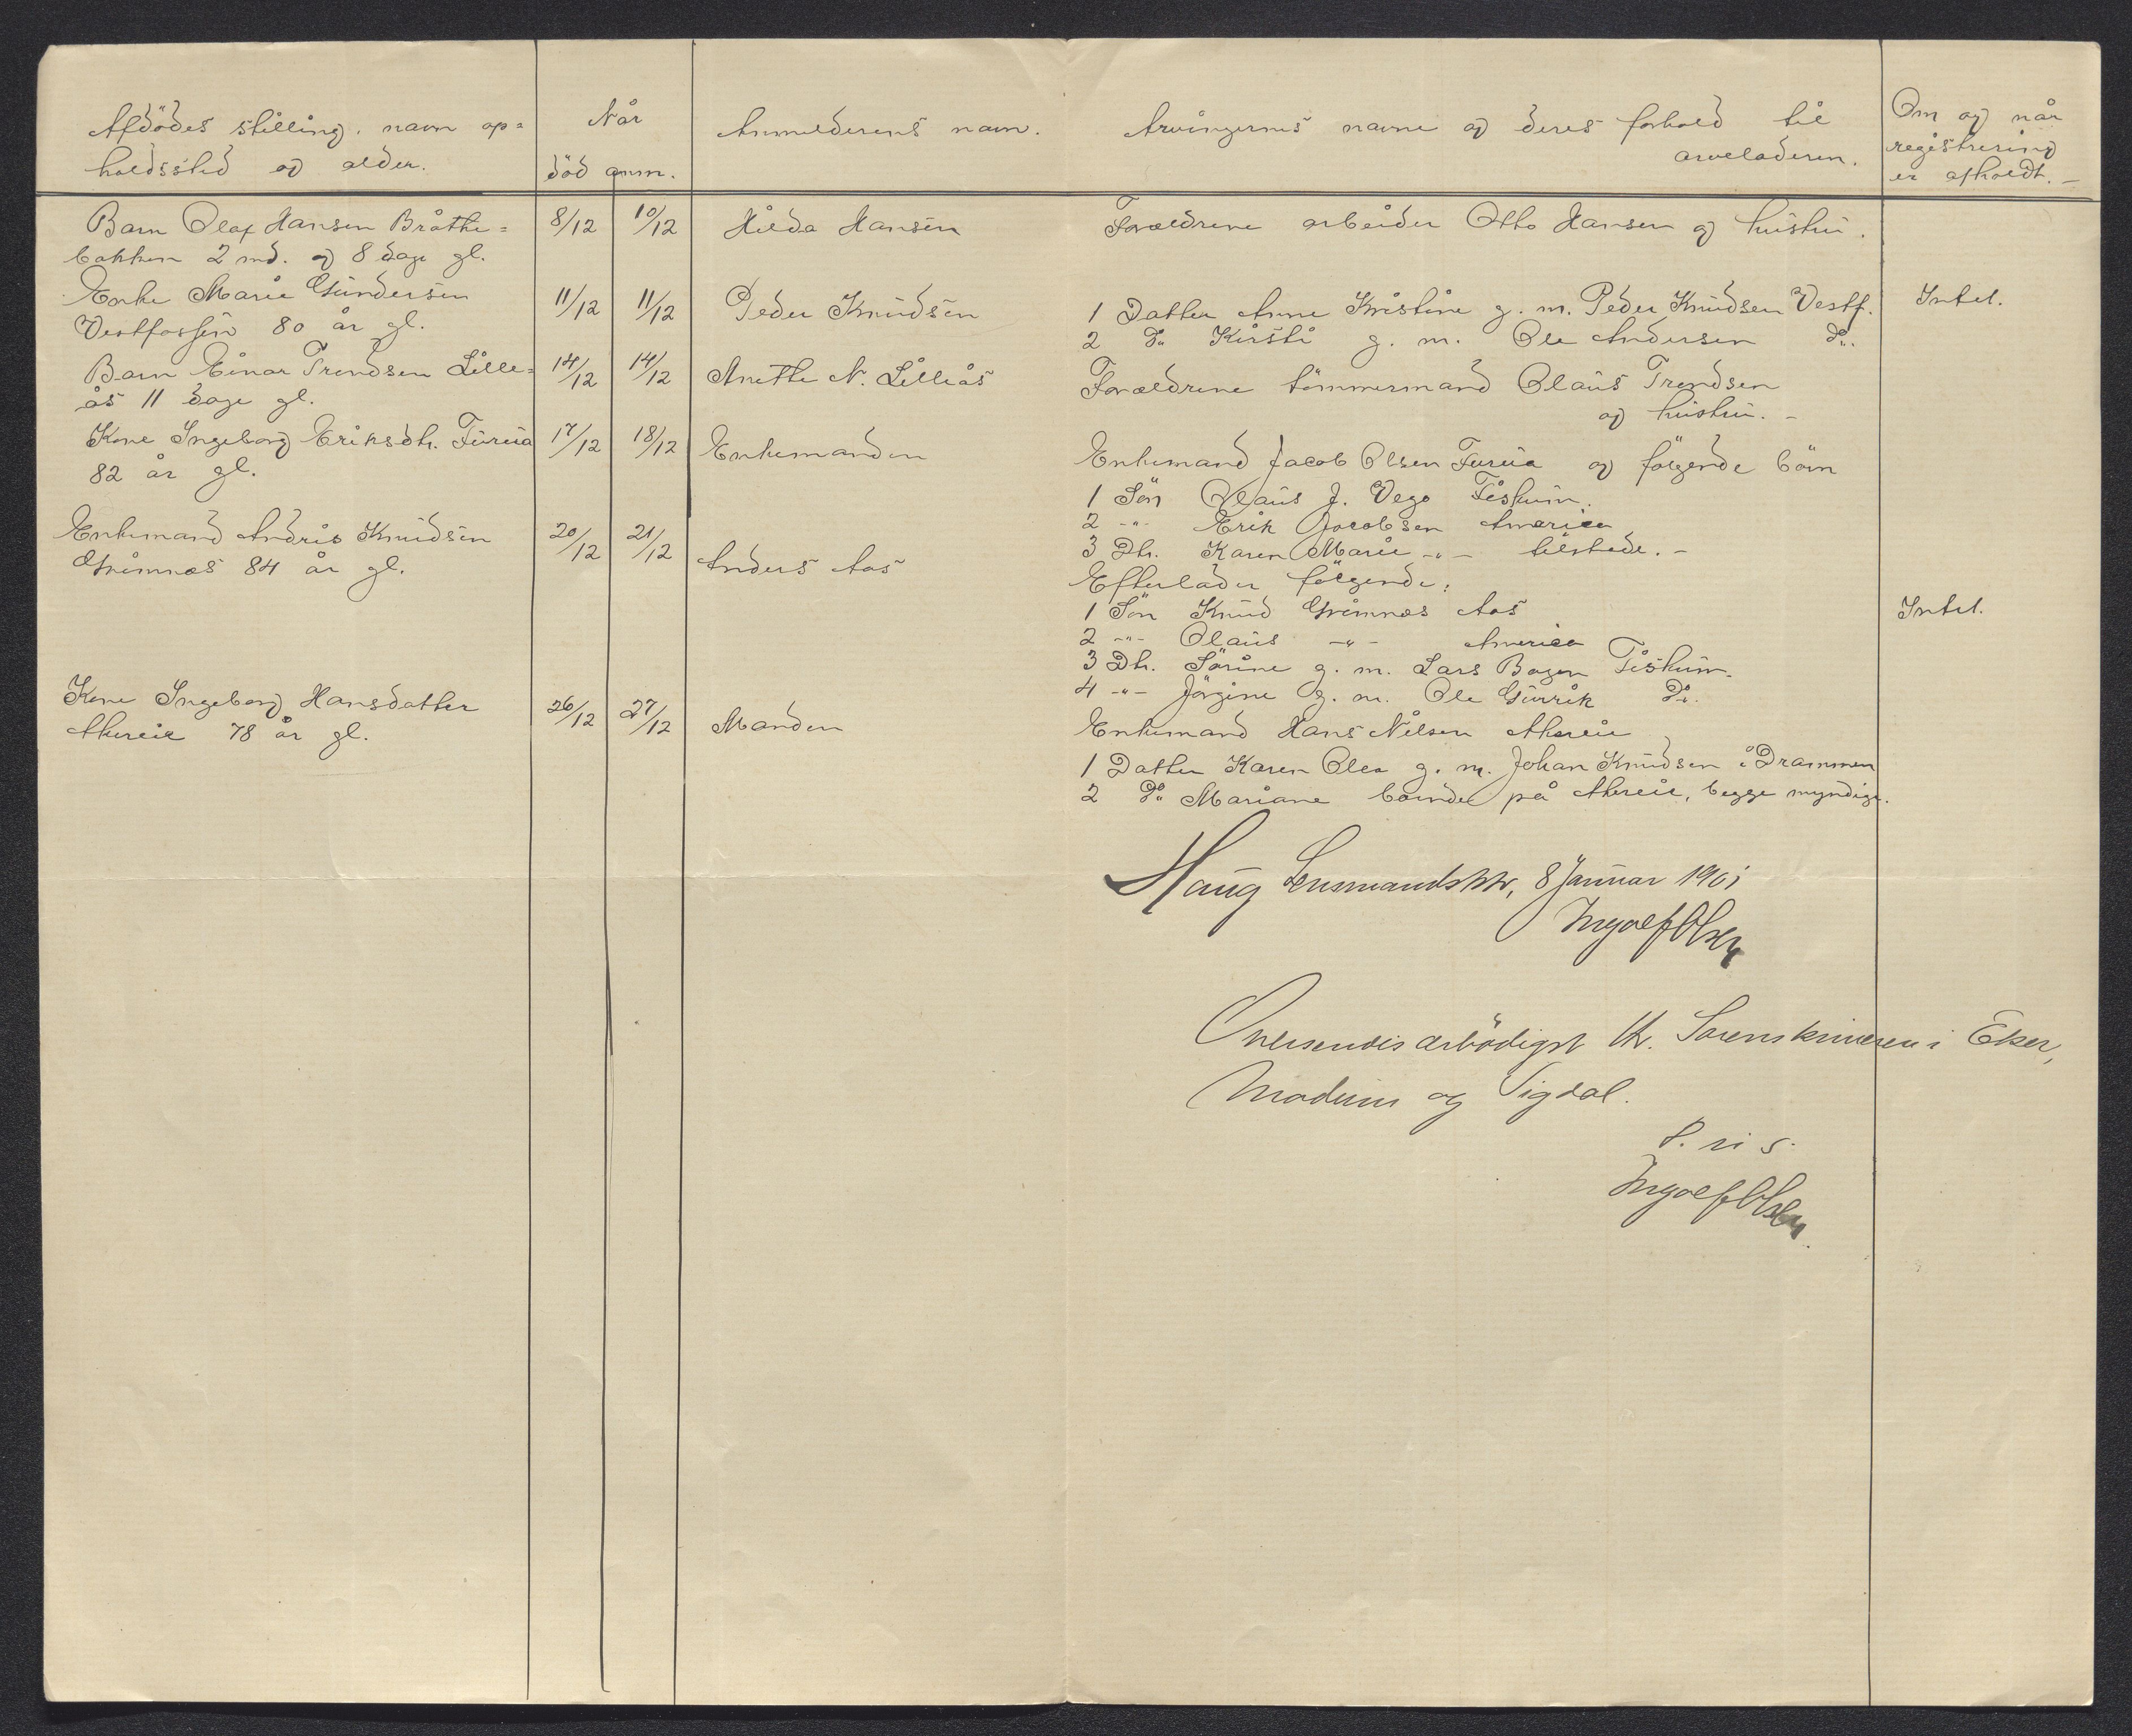 Afdödes stilling, navn op=
holdssted og alder.
Når
död anm.
Anmelderens navn.
Arvingernes navne og deres forhold til
arveladeren.
Om og når
registrering
er afholdt. -
Barn Olaf Hansen Bråthe=
bakken 2 md. og 8 dage gl.
8/12 10/12
Hilda Hansen
Forældrene arbeider Otto Hansen og hustru.
Enke Marie Gundersen
Vestfossen 80 år gl.
11/12 11/12
Peder Knudsen
1 Datter Anne Kristine g. m. Peder Knudsen Vestf.
2 Do Kirsti g. m. Ole Andersen Do.
Intet.
Barn Einar Trondsen Lille=
ås 11 dage gl.
14/12 14/12
Anette N. Lilleås
Forældrene tömmermand Olaus Trondsen
og hustru. -
Kone Ingeborg Eriksdtr. Furua
82 år gl.
17/12 18/12
Enkemanden
Enkemand Jacob Olsen Furua og fölgende börn
1 Sön Olaus J. Vego Fiskum.
2 -"- Erik Jacobsen America
3 Dtr. Karen Marie -"- tilstede. -
Enkemand Andris Knudsen
Grimnæs 84 år gl.
20/12 21/12
Anders Aas
Efterlader fölgende:
1 Sön Knud Grimnæs Aas
2 -"- Olaus -"- America
3 Dtr. Sörine g. m. Lars Bagen Fiskum.
4 -"- Jörgine g. m. Ole Gurrik Do.
Intet.
Kone Ingeborg Hansdatter
Akereie 78 år gl.
26/12 27/12
Manden
Enkemand Hans Nilsen Akereie
1 Datter Karen Olea g. m. Johan Knudsen i Drammen
2 Do Mariane boende på Akereie, begge myndige.
Haug Lensmandsktr, 8 Januar 1901
Ingolf Olsen
Oversendes ærbödigst Hr. Sorenskriveren i Eker,
Modum og Sigdal.
Ingolf Olsen.